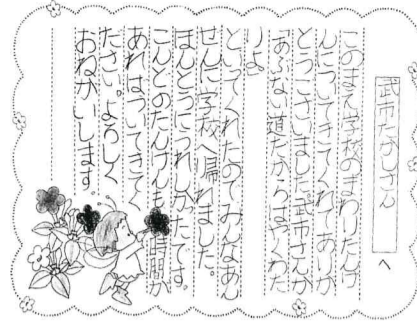 へ
このまえ学校のまわりたんけ
んについてきてくれてありが
とうございました。武市さんが
「あぶない道だからはやくわた
りよ。」
といってくれたのでみんなあん
ぜんに学校へ帰れました。
ほんとうにうれしかったです。
こんどのたんけんも時間が
あればついてきてく
ださい。よろしく
おねがいします。